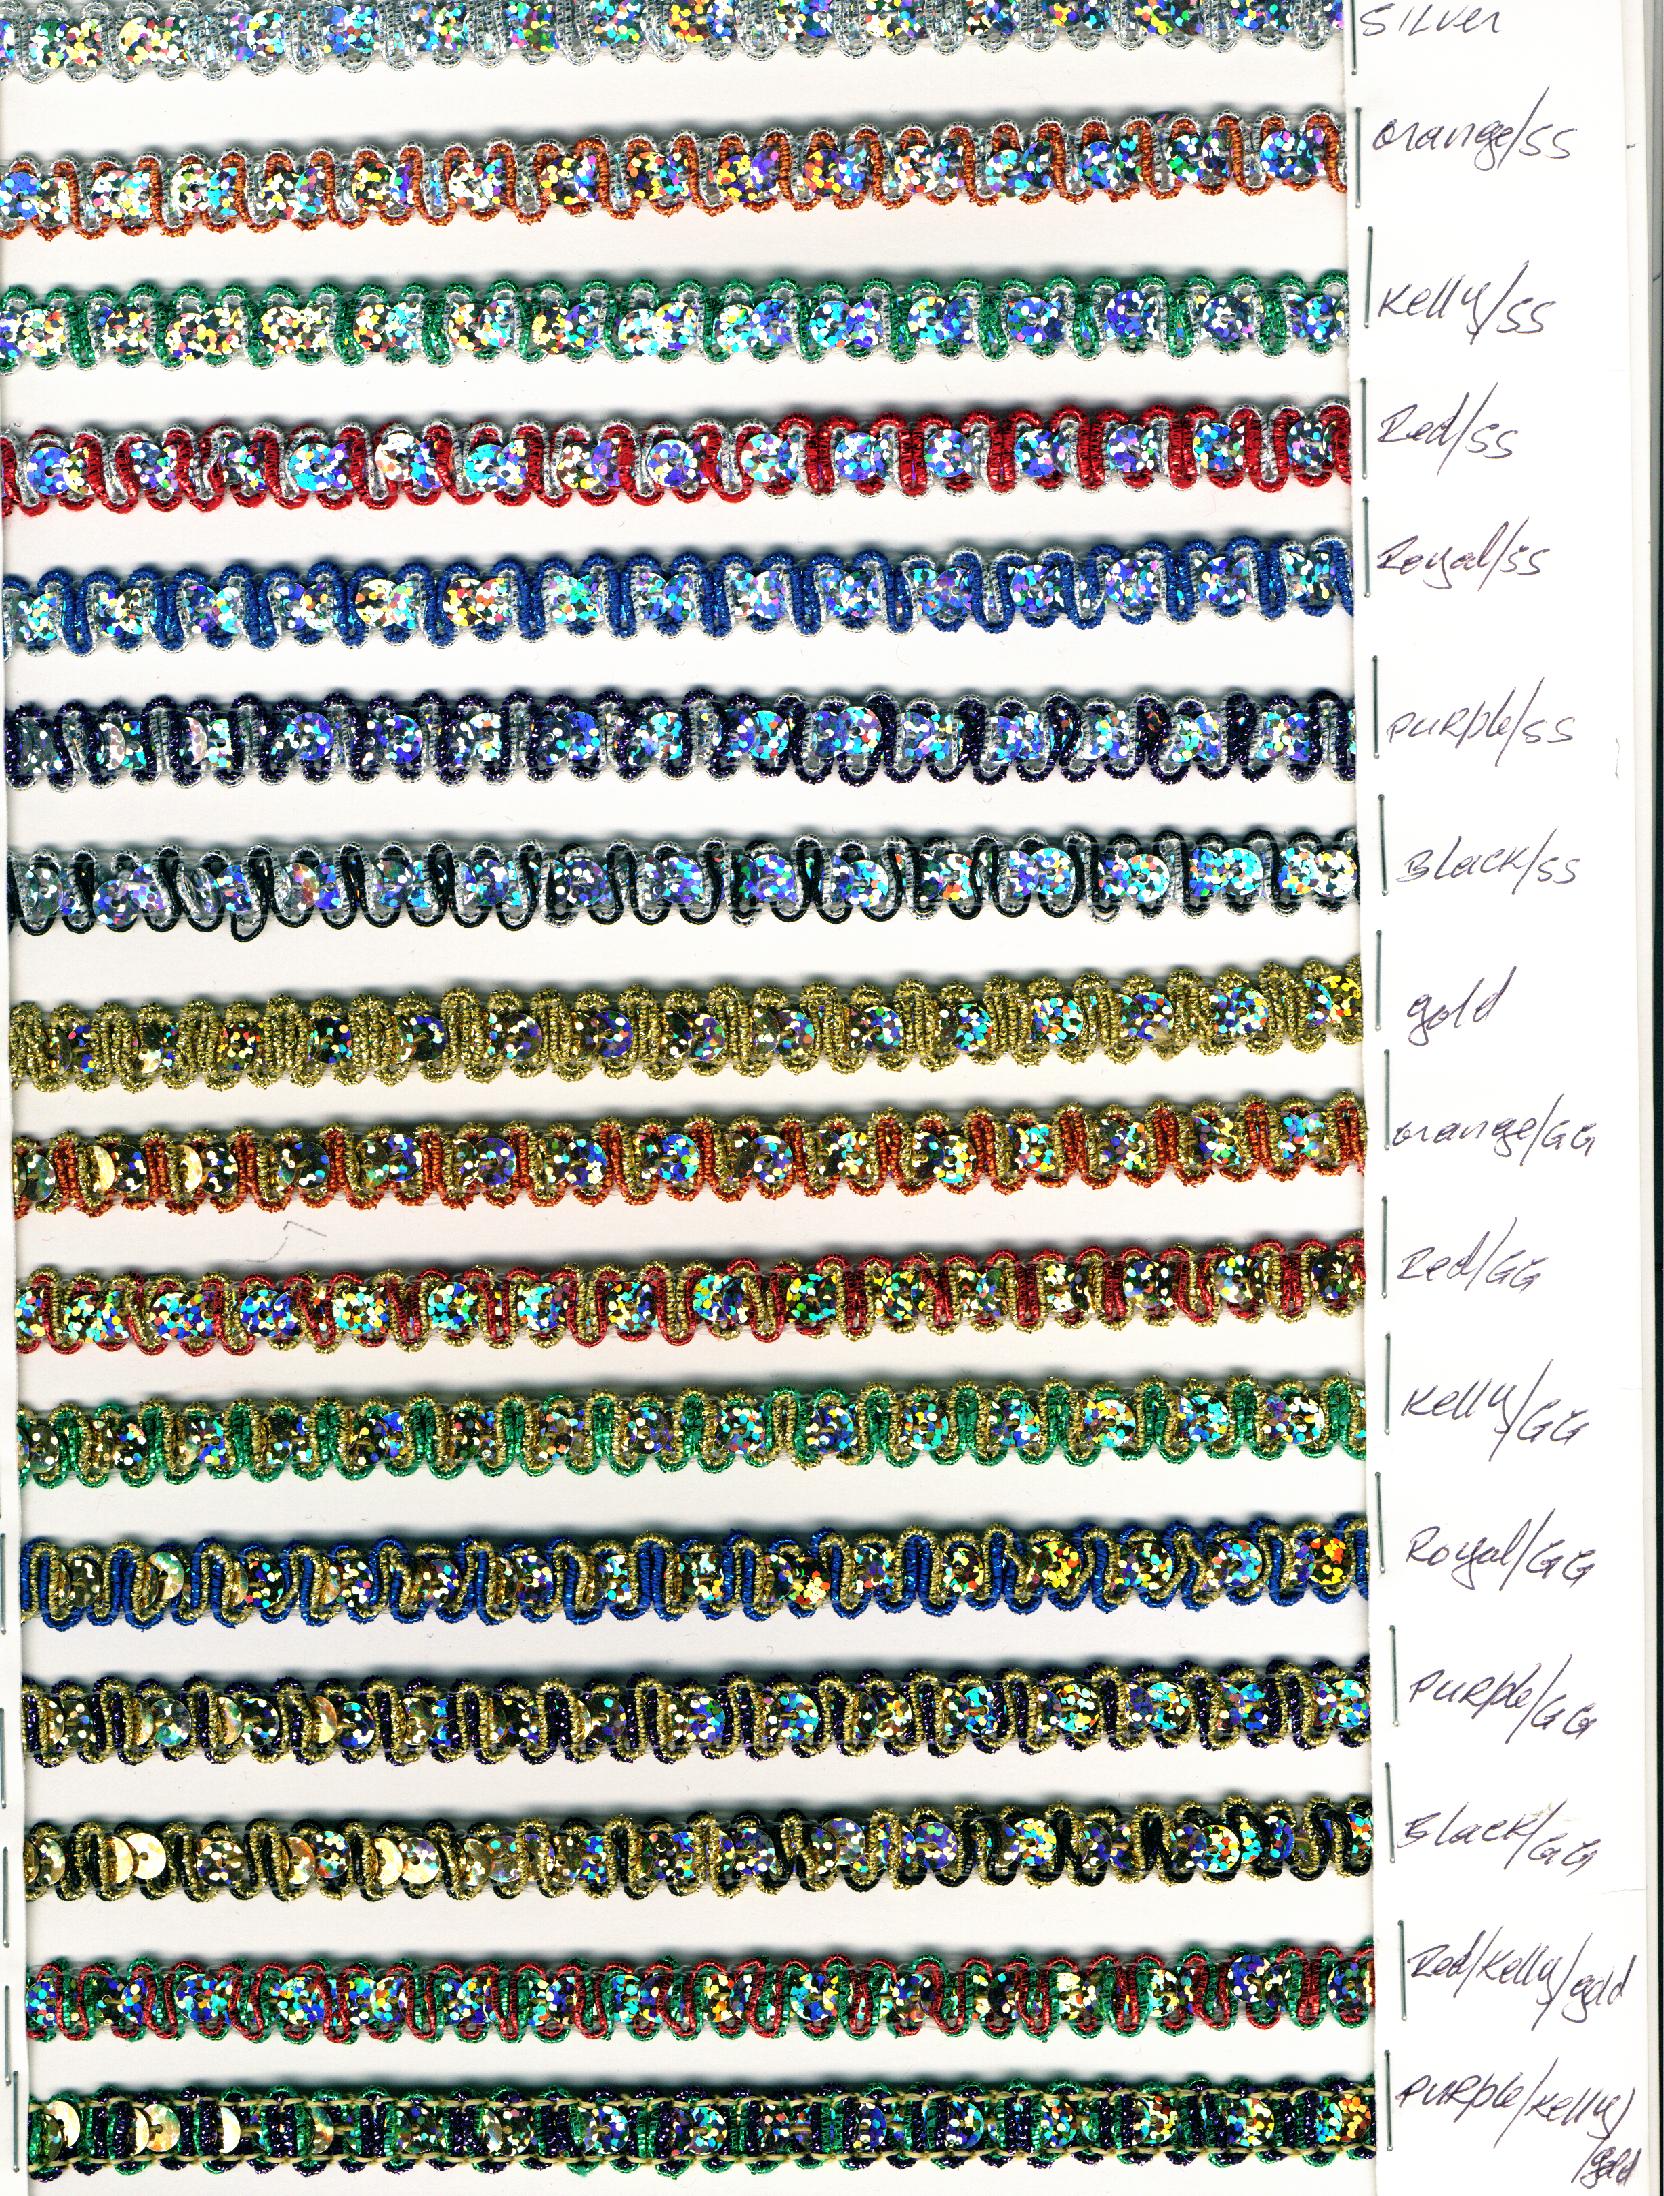 Silver
orange/SS
Kelly/SS
Red/SS
Royal/SS
Purple/SS
Black/SS
gold
orange/GG
Red/GG
Kelly/GG
Royal/GG
Purple/GG
Black/GG
Red/Kelly/gold
Purple/Kelly/
/gold